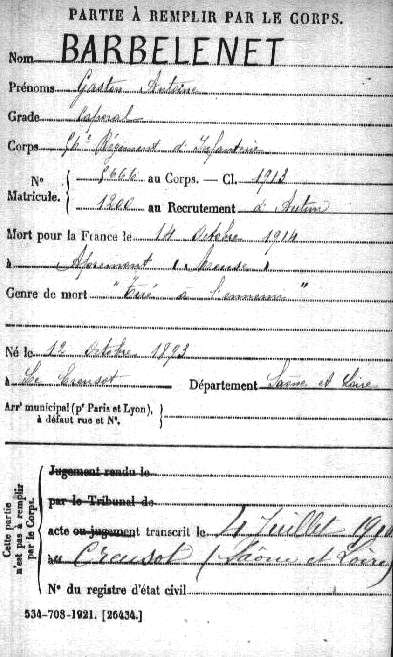 PARTIE À REMPLIR PAR LE CORPS.
Nom BARBELENET
Prénoms Gaston Antoine
Grade Caporal
Corps 56e Régiment d'Infanterie
N° Matricule. { 5666 au Corps. — Cl. 1913
1200 au Recrutement d'Autun
Mort pour la France le 14 Octobre 1914
à Apremont (Meuse)
Genre de mort "Tué à l'ennemi"
Né le 12 Octobre 1893
à Le Creusot Département Saône et Loire
Arr^t municipal (p^r Paris et Lyon), à défaut rue et N°. }
Cette partie n'est pas à remplir par le Corps.
Jugement rendu le
par le Tribunal de
acte ou jugement transcrit le 4 Juillet
au Creusot (Saône et Loire)
N° du registre d'état civil
534-708-1921. [26434.]